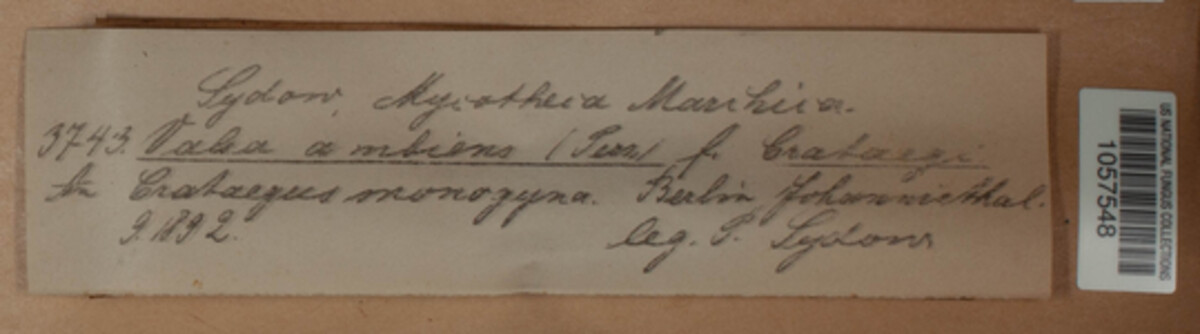 Sydow, Mycotheca Marchica.
3743. Valsa ambiens (Pers) f. Crataegi
An Crataegus monogyna. Berlin, Johannisthal.
9. 1892. leg. P. Sydow
US NATIONAL FUNGUS COLLECTIONS
1057548